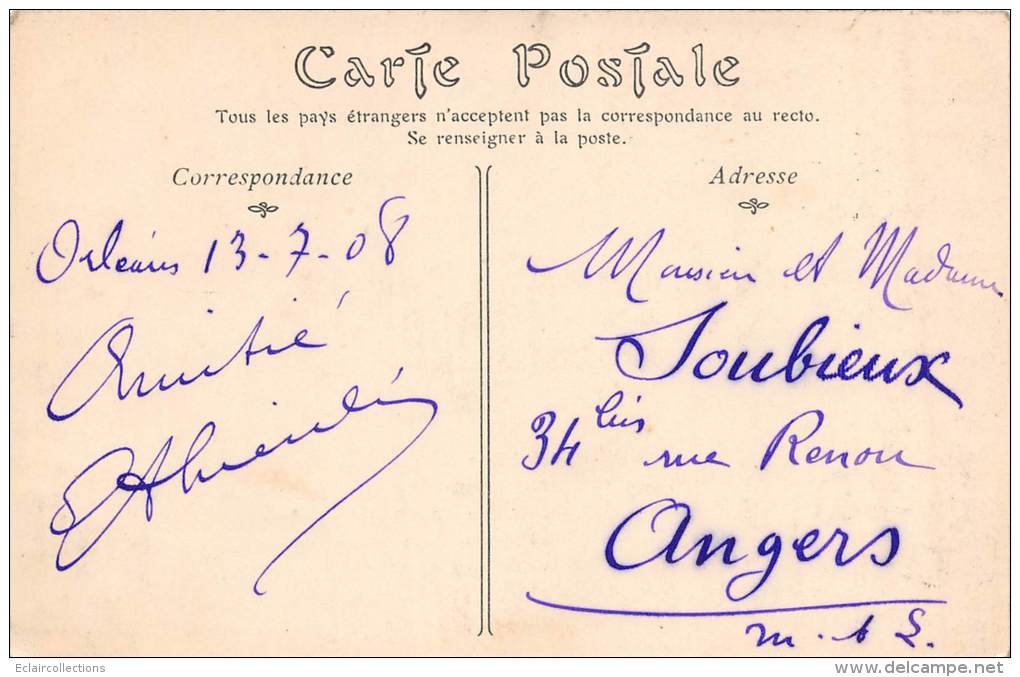 Carte Postale
Tous les pays étrangers n'acceptent pas la correspondance au recto.
Se renseigner à la poste.
Correspondance
Orléans 13-7-08
Amitié
Adresse
Monsieur et Madame
Soubieux
34 bis rue Renou
Angers
M. & L.
Eclaircollections
www.delcampe.net